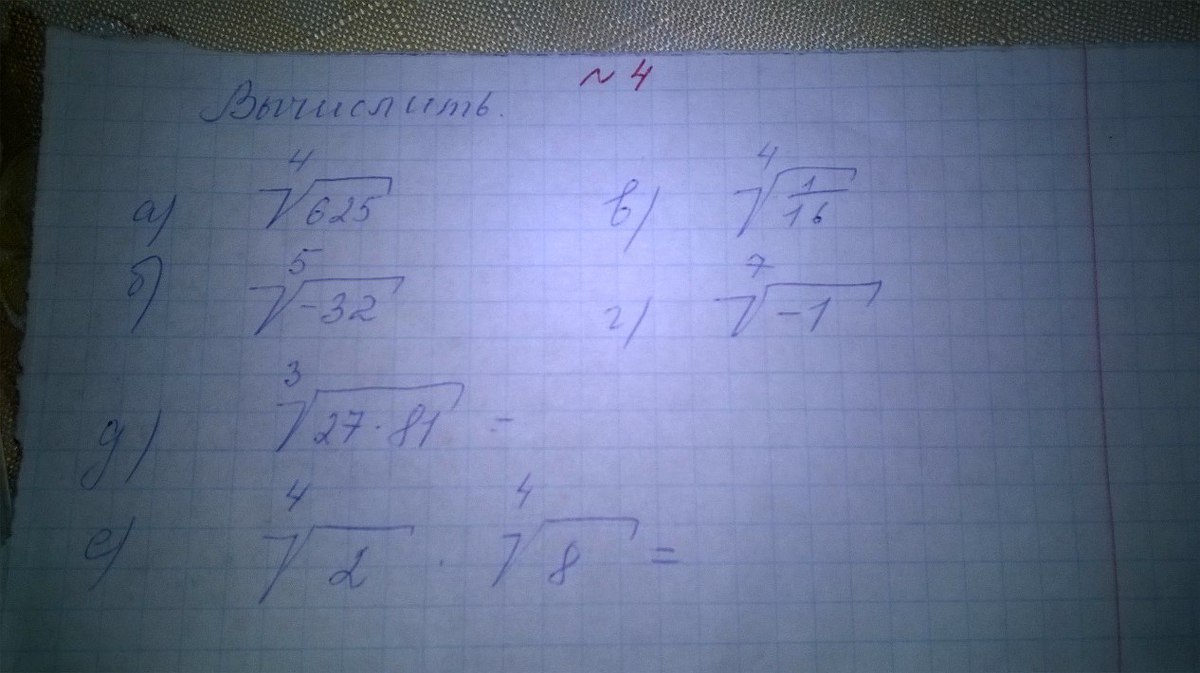 ~ 4
Вычислить.
а) ⁴√625 в) ⁴√(1/16)
б) ⁵√-32 г) ⁷√-1
д) ³√27·81 =
е) ⁴√2 · ⁴√8 =